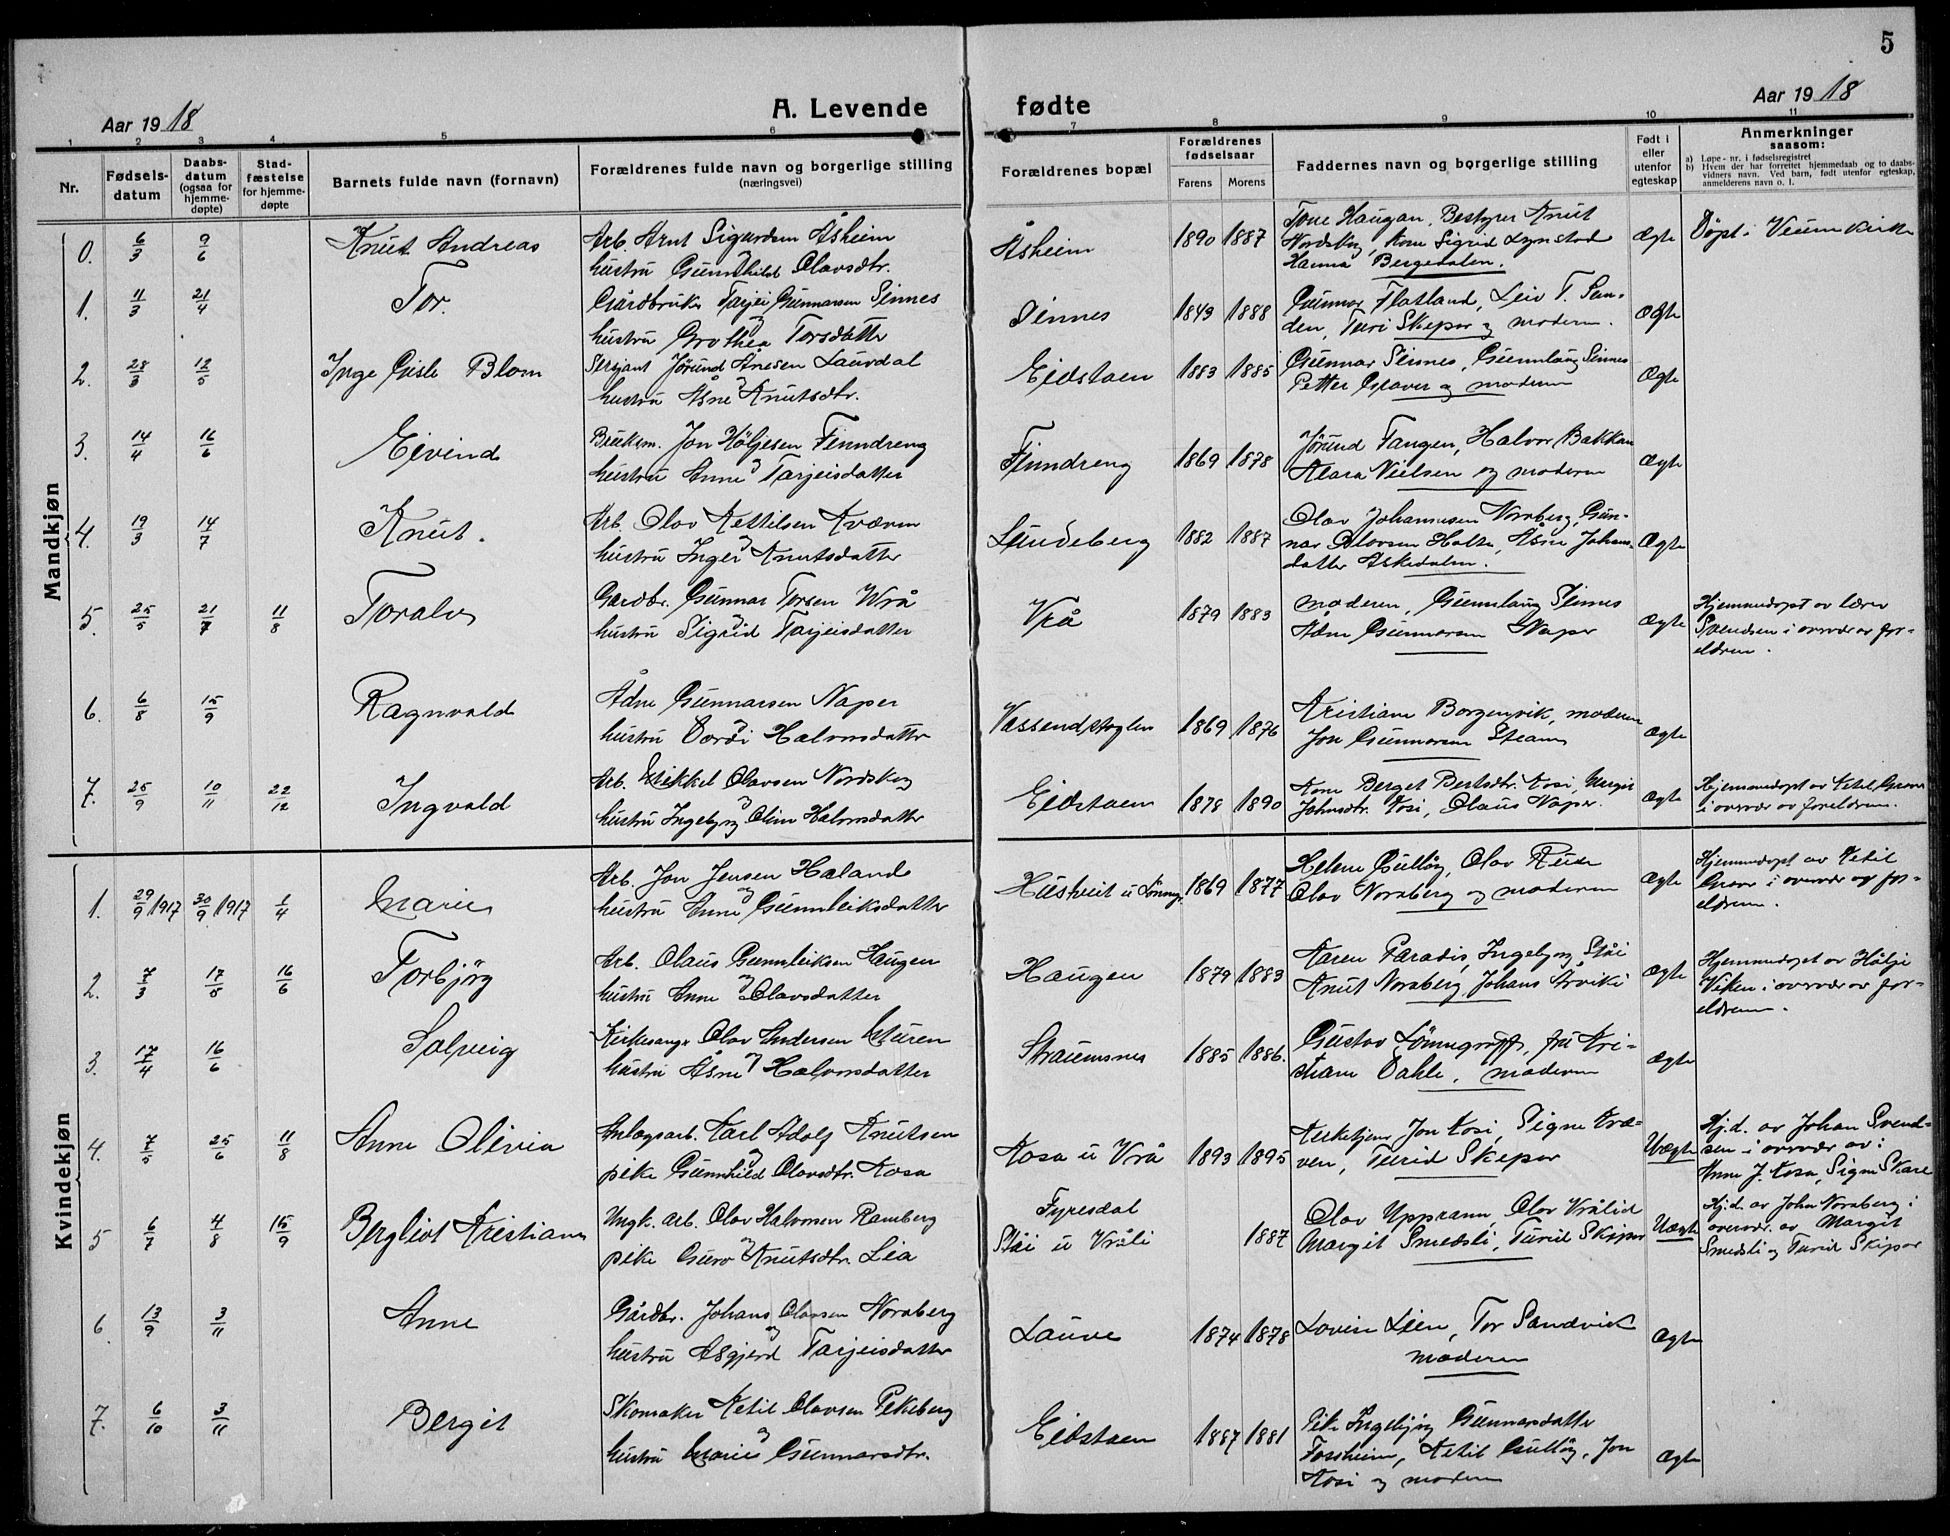 5
Aar 1918
A. Levende fødte
Aar 1918
1 2 3 4 5 6 7 8 9 10 11
Nr.
Fødsels-
datum
Daabs-
datum
(ogsaa for
hjemme-
døpte)
Stad-
fæstelse
for hjemme-
døpte
Barnets fulde navn (fornavn)
Forældrenes fulde navn og borgerlige stilling
(næringsvei)
Forældrenes bopæl
Forældrenes
fødselsaar
Farens Morens
Faddernes navn og borgerlige stilling
Født i
eller
utenfor
egteskap
Anmerkninger
saasom:
a) Løpe-nr. i fødselsregistret
b) Hvem der har forrettet hjemmedaab og to daabs-
vidners navn. Ved barn, født utenfor egteskap,
anmelderens navn o. l.
Mandkjøn
0. 6/3 9/6 Knut Andreas
Arb. Arnt Sigurdsen Åsheim
og
hustru Gunnhild Olavsdtr.
Åsheim 1890 1887
Tone Haugan, Bestyrer Knut
Nordskog, Kone Sigrid Lynstad
Hanna Bergedalen.
Ægte Døpt i Veum kirke
1. 11/3 21/4 Tor.
Gårdbruker Tarjei Gunnarsen Sinnes
og
hustru Grothea Torsdatter
Sinnes 1843 1888
Gunnar Flatland, Leiv T. Sun-
den, Turi Skeper og moderen.
Ægte
2. 28/3 12/5 Inge Gisle Blom
Sersjant Jørund Ånesen Lauvdal
og
hustru Åsne Knutsdtr.
Eidstaen 1883 1885
Gunnar Sinnes, Gunnlaug Sinnes
Petter Graver og moderen
Ægte
3. 14/4 16/6 Eivind
Brukem. Jon Høljesen Finndreng
og
hustru Anne Tarjeisdatter
Finndreng 1869 1878
Jørund Tangen, Halvor Bakkan
Klara Nielsen og moderen
Ægte
4. 19/3 14/7 Knut.
Arb. Olav Kettilsen Kvæven
og
hustru Inger Knutsdatter
Lundeberg 1882 1887
Olav Johannesen Noraberg, Gun-
nar Olavsen Holte, Åsne Johans-
datter Askedalen.
Ægte
5. 25/5 21/7 11/8 Toralv
Gardbr. Gunnar Torsen Vrå
og
hustru Sigrid Tarjeisdatter
Vrå 1879 1883
moderen, Gunnlaug Sinnes
Adne Gunnarsen Naper
Ægte
Hjemmedøpt av lærer
Svendsen i overvær av for-
eldrene.
6. 6/8 15/9 Ragnvald
Ådne Gunnarsen Naper
og
hustru Dordi Halvorsdatter
1869 1876
Kristiane Borgenvik, moderen
Jon Gunnarsen
Ægte
7. 25/9 10/11 22/12 Ingvald
Arb. Mikkel Olavsen Nordskog
og
hustru Ingebjørg Oline Halvorsdatter
Eidstaen 1878 1890
Kone Berget Bertsdtr. Kosi, Margit
Johnsdtr. Kosi, Olaus Naper.
Ægte
Hjemmedøpt av Ketil Graver
i overvær av foreldrene.
Kvindekjøn
1. 29/9 1917 30/9 1917 1/4 Marie
Arb. Jon Jensen Haland
og
hustru Anne Gunnleiksdatter
1869 1877
Helene Gulløy, Olav Ruse
Olav Noraberg og moderen
Ægte
Hjemmedøpt av Ketil
Graver i overvær av for-
eldrene.
2. 7/3 17/5 16/6 Torbjørg
Arb. Olaus Gunnleiksen Haugen
og
hustru Anne Olavsdatter
Haugen 1879 1883
Karen Paradis, Ingebjørg Ståi
Knut Noraberg, Johans Arviki
Ægte
Hjemmedøpt av Hølje
Viken i overvær av for-
eldrene.
3. 17/4 16/6 Solveig
Kirkesanger Olav Andersen Muren
og
hustru Åsne Halvorsdatter
Straumsnes 1885 1886.
Gustav Lønnegräff, fru Kri-
stiane Dahle, moderen
Ægte
4. 7/5 25/6 11/8 Anne Olivia
Anlægsarb. Karl Adolf Knutsen
og
pike Gunnhild Olavsdtr. Kosa
Kosa u Vrå 1893 1895
Kirketjener Jon Kosi, Signe Kvæ-
ven, Turid Skeper
Uægte
Hj.d. av Johan Svend-
sen i overvær av:
Anne J. Kosa, Signe Skare
5 6/7 4/8 15/9 Bergliot Kristiane
Ungk. arb. Olav Halvorsen Ramberg
og
pike Guro Knutsdtr. Lia
Fyresdal
Ståi u Vråli 1887
Olav Upprann, Olav Vrålid
Margit Smedsli, Turid Skeper
Uægte
Hj.d. av John Noraberg i
overvær. av Margit
Smedsli og Turid Skeper
6. 13/9 3/11 Anne
Gårdbr. Johans Olavsen Noraberg
og
hustru Asgjerd Tarjeisdatter
Lauve 1874 1878
Lovise Lien, Tor Sandvik
moderen
Ægte
7. 6/10 3/11 Bergit
Skomaker Ketil Olavsen Pekeberg
og
hustru Marie Gunnarsdtr.
Eidstaen 1887 1881
Pike Ingebjørg Gunnarsdatter
Fossheim, Ketil Gulløy, Jon
Kosi og moderen
Ægte